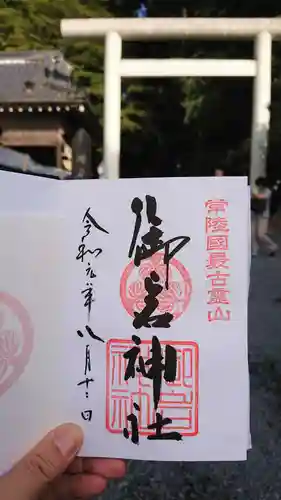 常陸国最古霊山
御岩神社
御岩神社
令和元年八月十二日